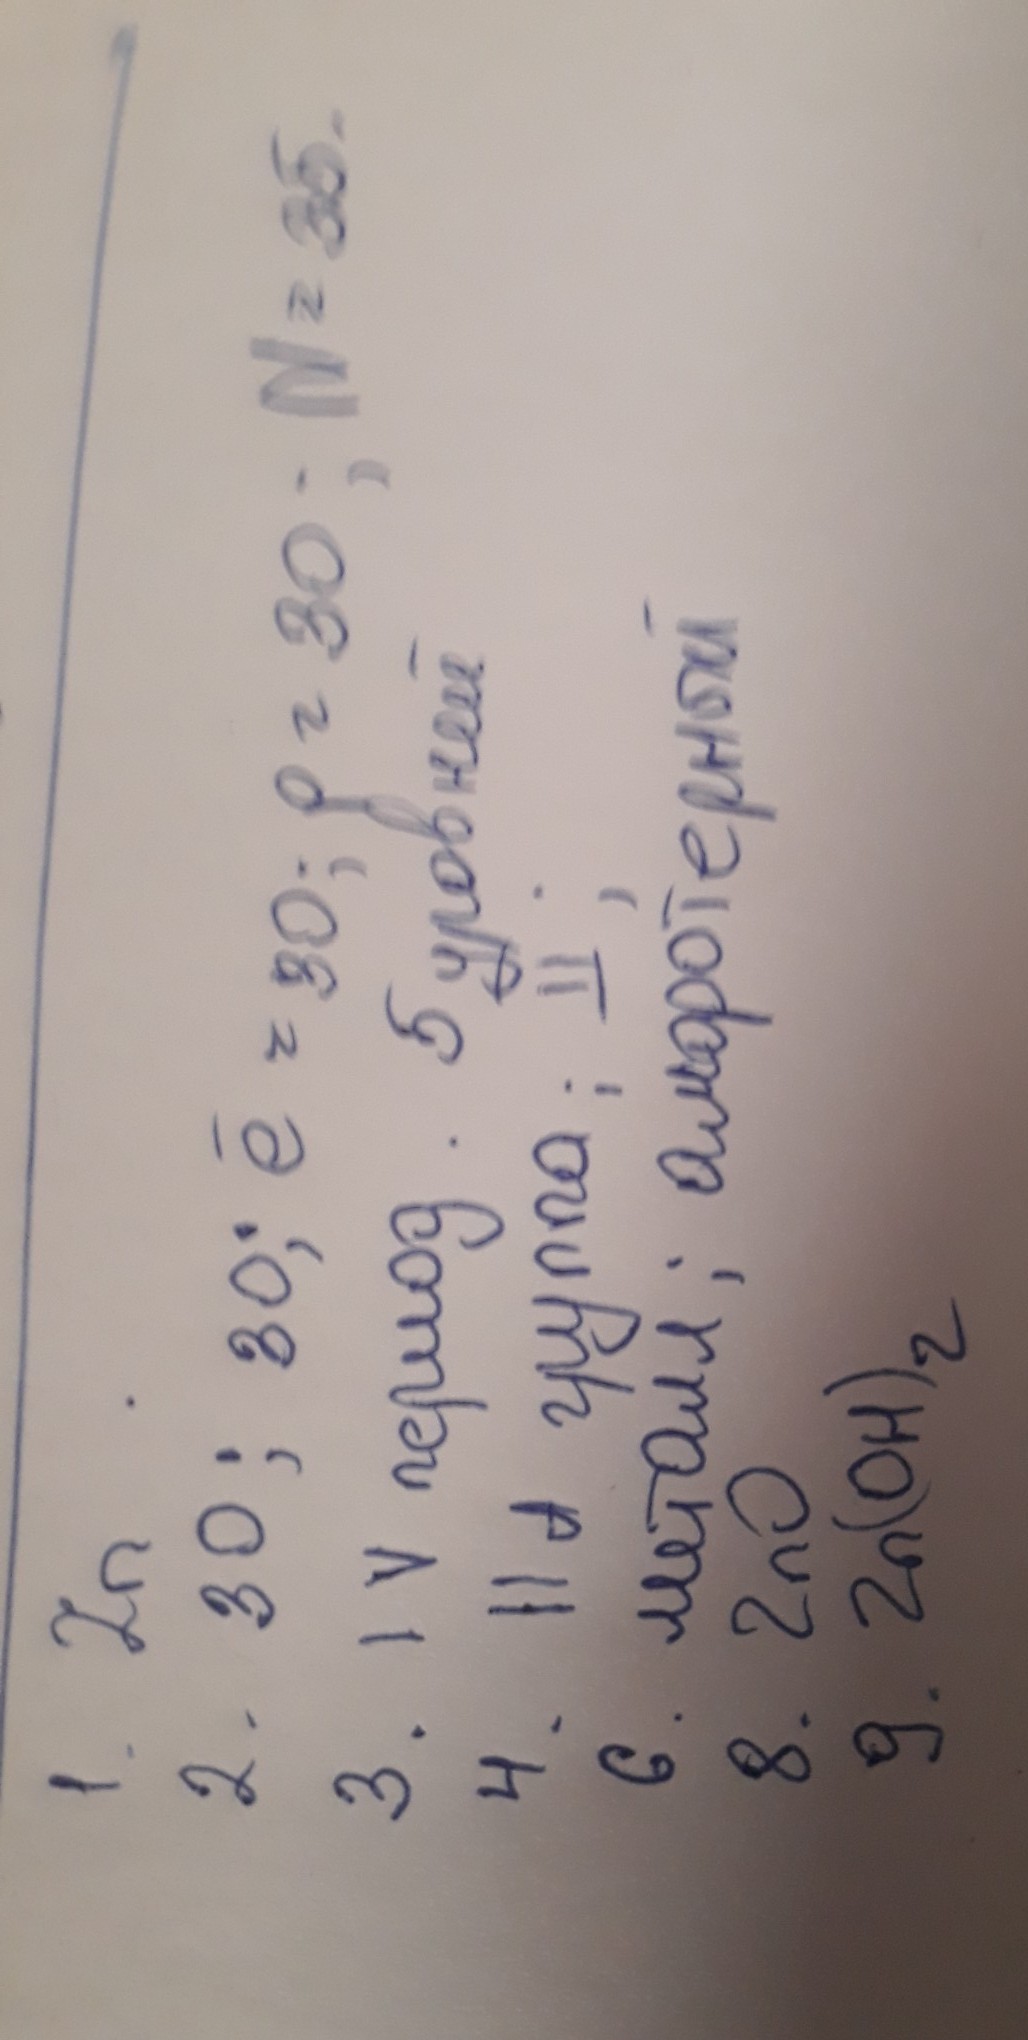 1. Zn.
2. 30; 30; ē = 30; p = 30; N = 35.
3. IV период. 5 уровней
4. II д группа; II;
6. металл; амфотерный
8. ZnO
9. Zn(OH)2